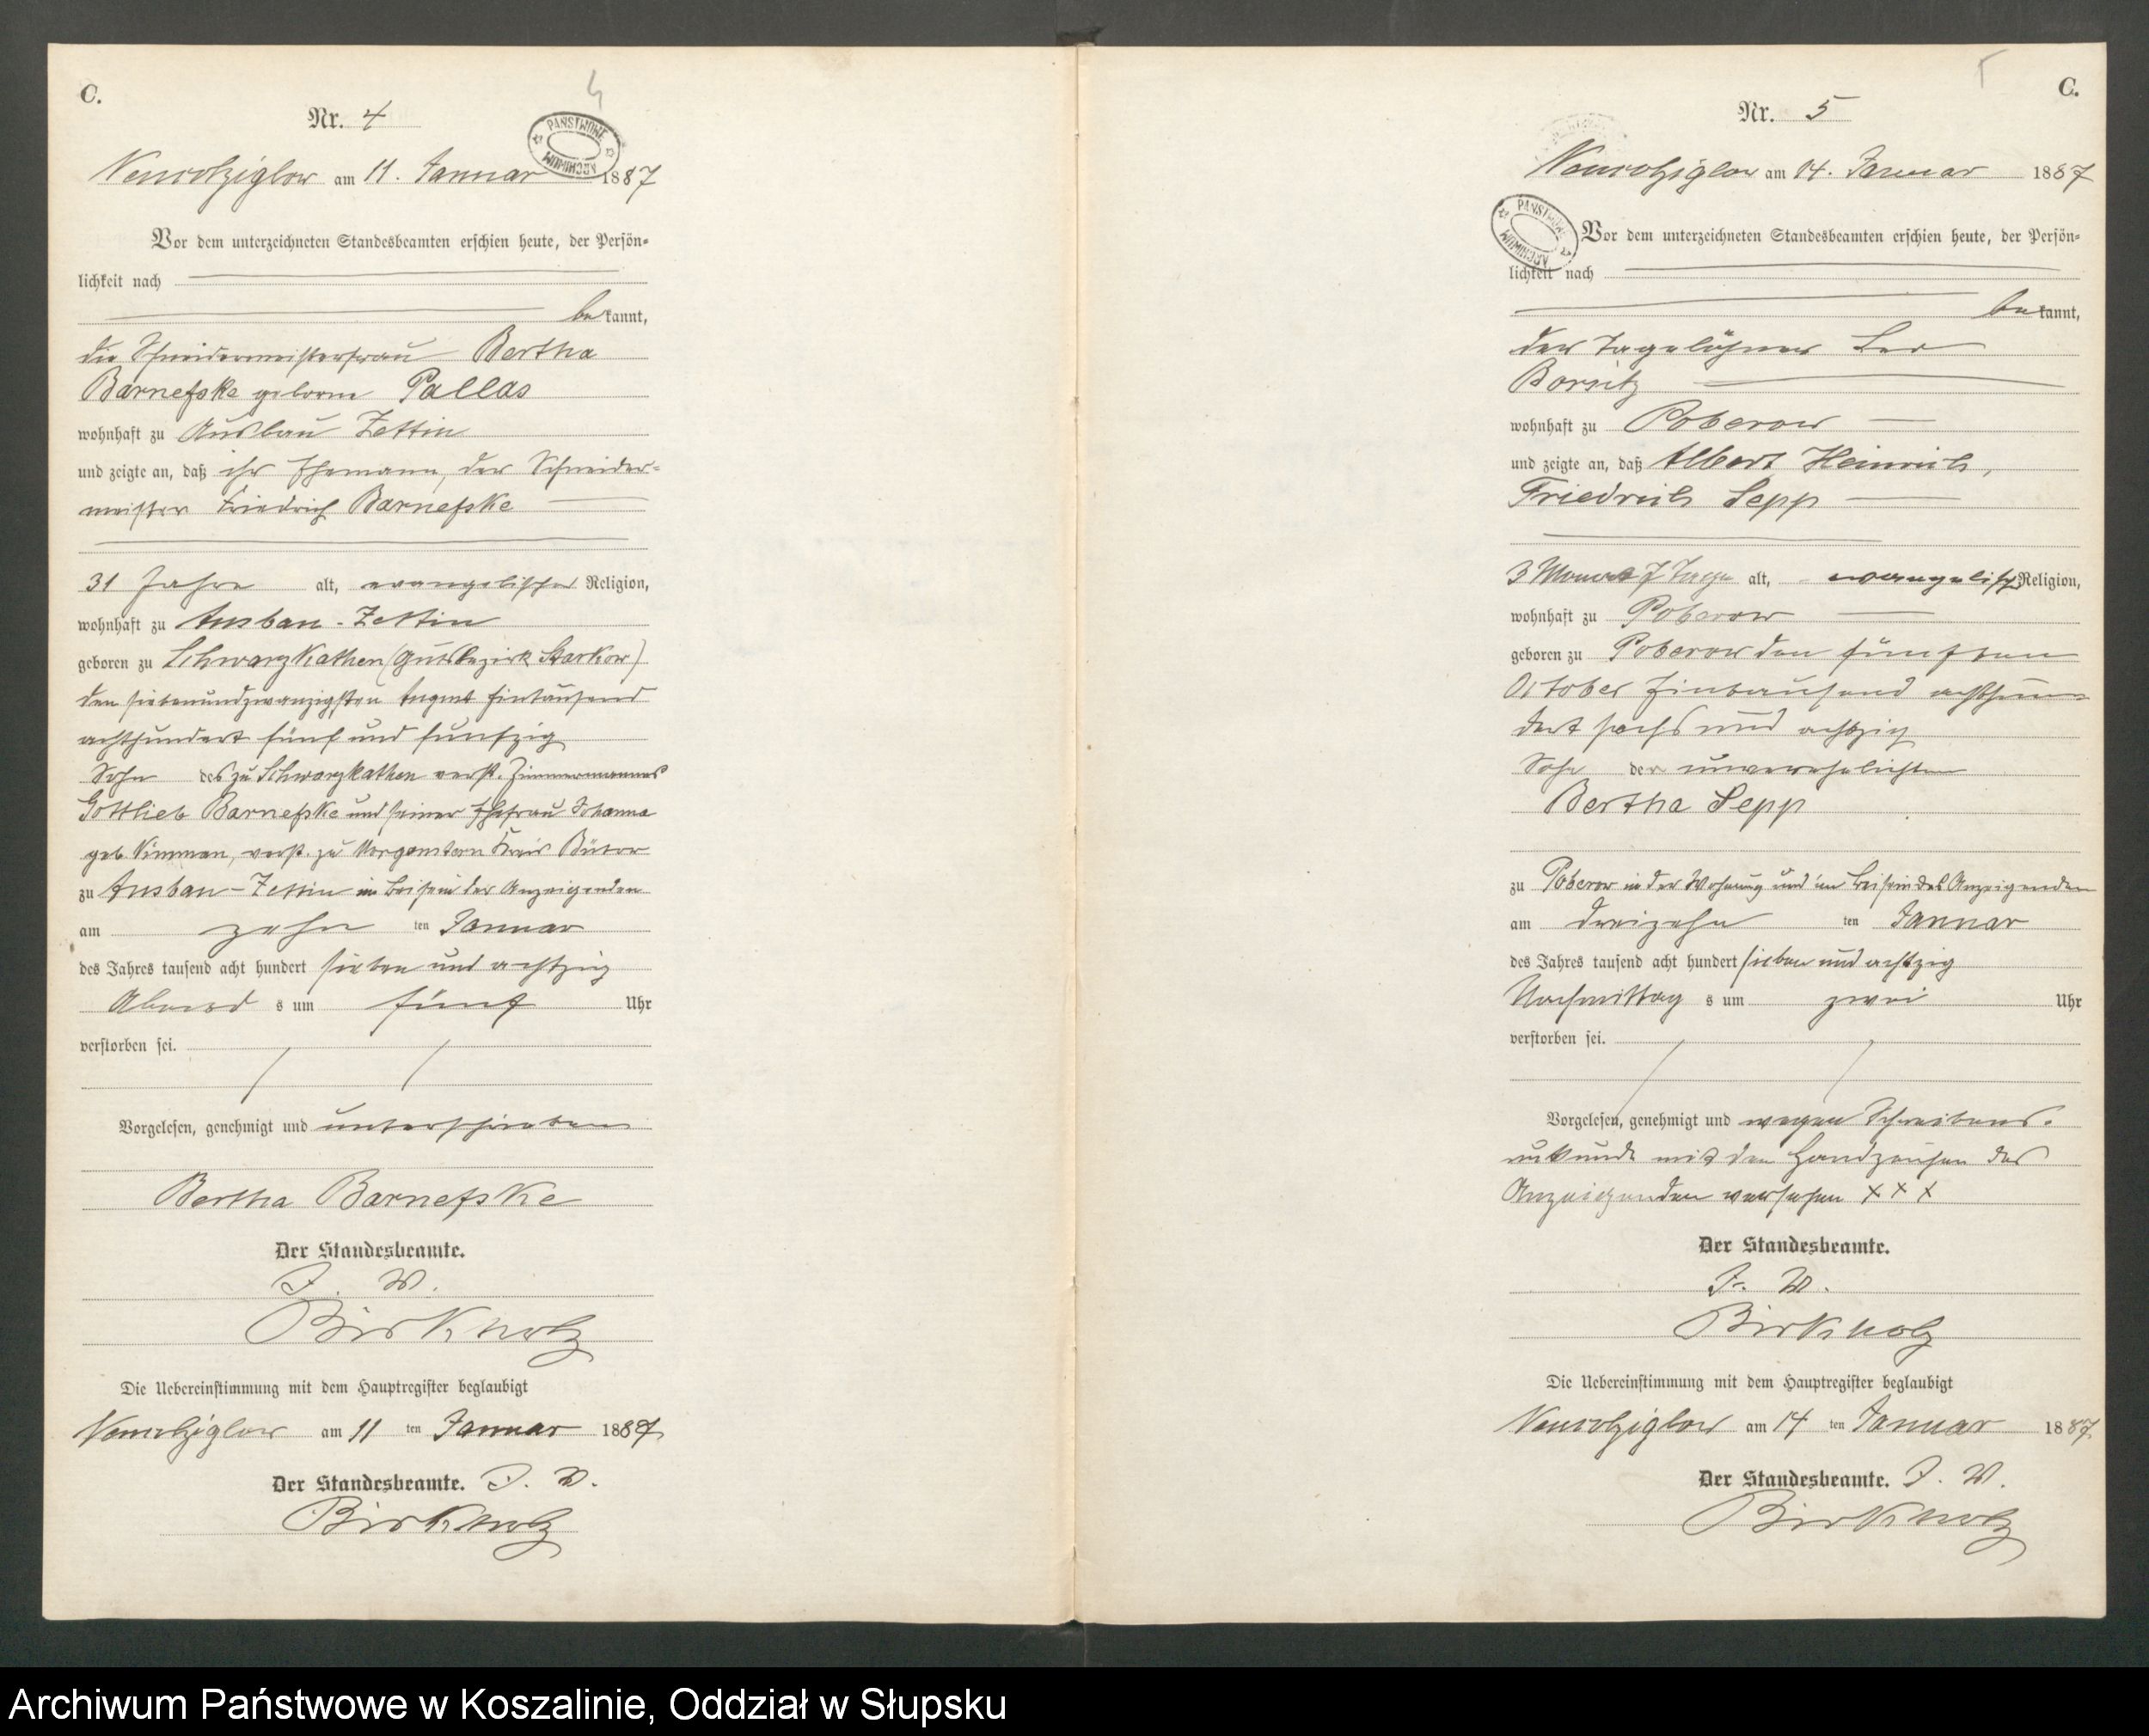 C.
4
Nr. 4
PAŃSTWOWE ARCHIWUM
am 11. Januar 1887
Vor dem unterzeichneten Standesbeamten erschien heute, der Persön-
lichkeit nach
bekannt,
die Schneidermeisterfrau Bertha
Barnefske geborne Pallas
wohnhaft zu Ausbau Zettin
und zeigte an, daß ihr Ehemann, der Schneider-
meister Friedrich Barnefske
31 Jahre alt, evangelischer Religion,
wohnhaft zu Ausbau-Zettin
geboren zu Schwarzkathen (Gutsbezirk Starkow)
den siebenundzwanzigsten August Eintausend
achthundert fünf und funfzig
Sohn des zu Schwarzkathen verst. Zimmermannes
Gottlieb Barnefske und seiner Ehefrau Johanna
geb. verst. zu Morgenstern Kreis Bütow
zu Ausbau-Zettin im Beisein der Anzeigenden
am zehn ten Januar
des Jahres tausend acht hundert sieben und achtzig
Abend s um fünf Uhr
verstorben sei.
Vorgelesen, genehmigt und unterschrieben
Bertha Barnefske
Der Standesbeamte.
J. V.
Birkholz
Die Uebereinstimmung mit dem Hauptregister beglaubigt
am 11 ten Januar 1887
Der Standesbeamte. J. V.
Birkholz
C.
5
Nr. 5
am 14. Januar 1887
PAŃSTWOWE ARCHIWUM
Vor dem unterzeichneten Standesbeamten erschien heute, der Persön-
lichkeit nach
bekannt,
der Tagelöhner
wohnhaft zu Poberow
und zeigte an, daß Albert Heinrich,
Friedrich Sepp
3 Monat 7 Tage alt, evangelisch Religion,
wohnhaft zu Poberow
geboren zu Poberow den fünften
October Eintausend achthun-
dert sechs und achtzig
Sohn der unverehelichten
Bertha Sepp
zu Poberow in der Wohnung und im Beisein des Anzeigenden
am dreizehn ten Januar
des Jahres tausend acht hundert sieben und achtzig
Nachmittag s um zwei Uhr
verstorben sei.
Vorgelesen, genehmigt und wegen Schreibens-
unkunde mit den Handzeichen des
Anzeigenden versehen x x x
Der Standesbeamte.
J. V.
Birkholz
Die Uebereinstimmung mit dem Hauptregister beglaubigt
am 14 ten Januar 1887
Der Standesbeamte. J. V.
Birkholz
Archiwum Państwowe w Koszalinie, Oddział w Słupsku